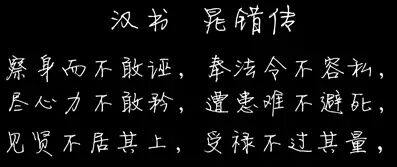 汉书 晁错传
察身而不敢诬，奉法令不容私，
尽心力不敢矜，遭患难不避死，
见贤不居其上，受禄不过其量，